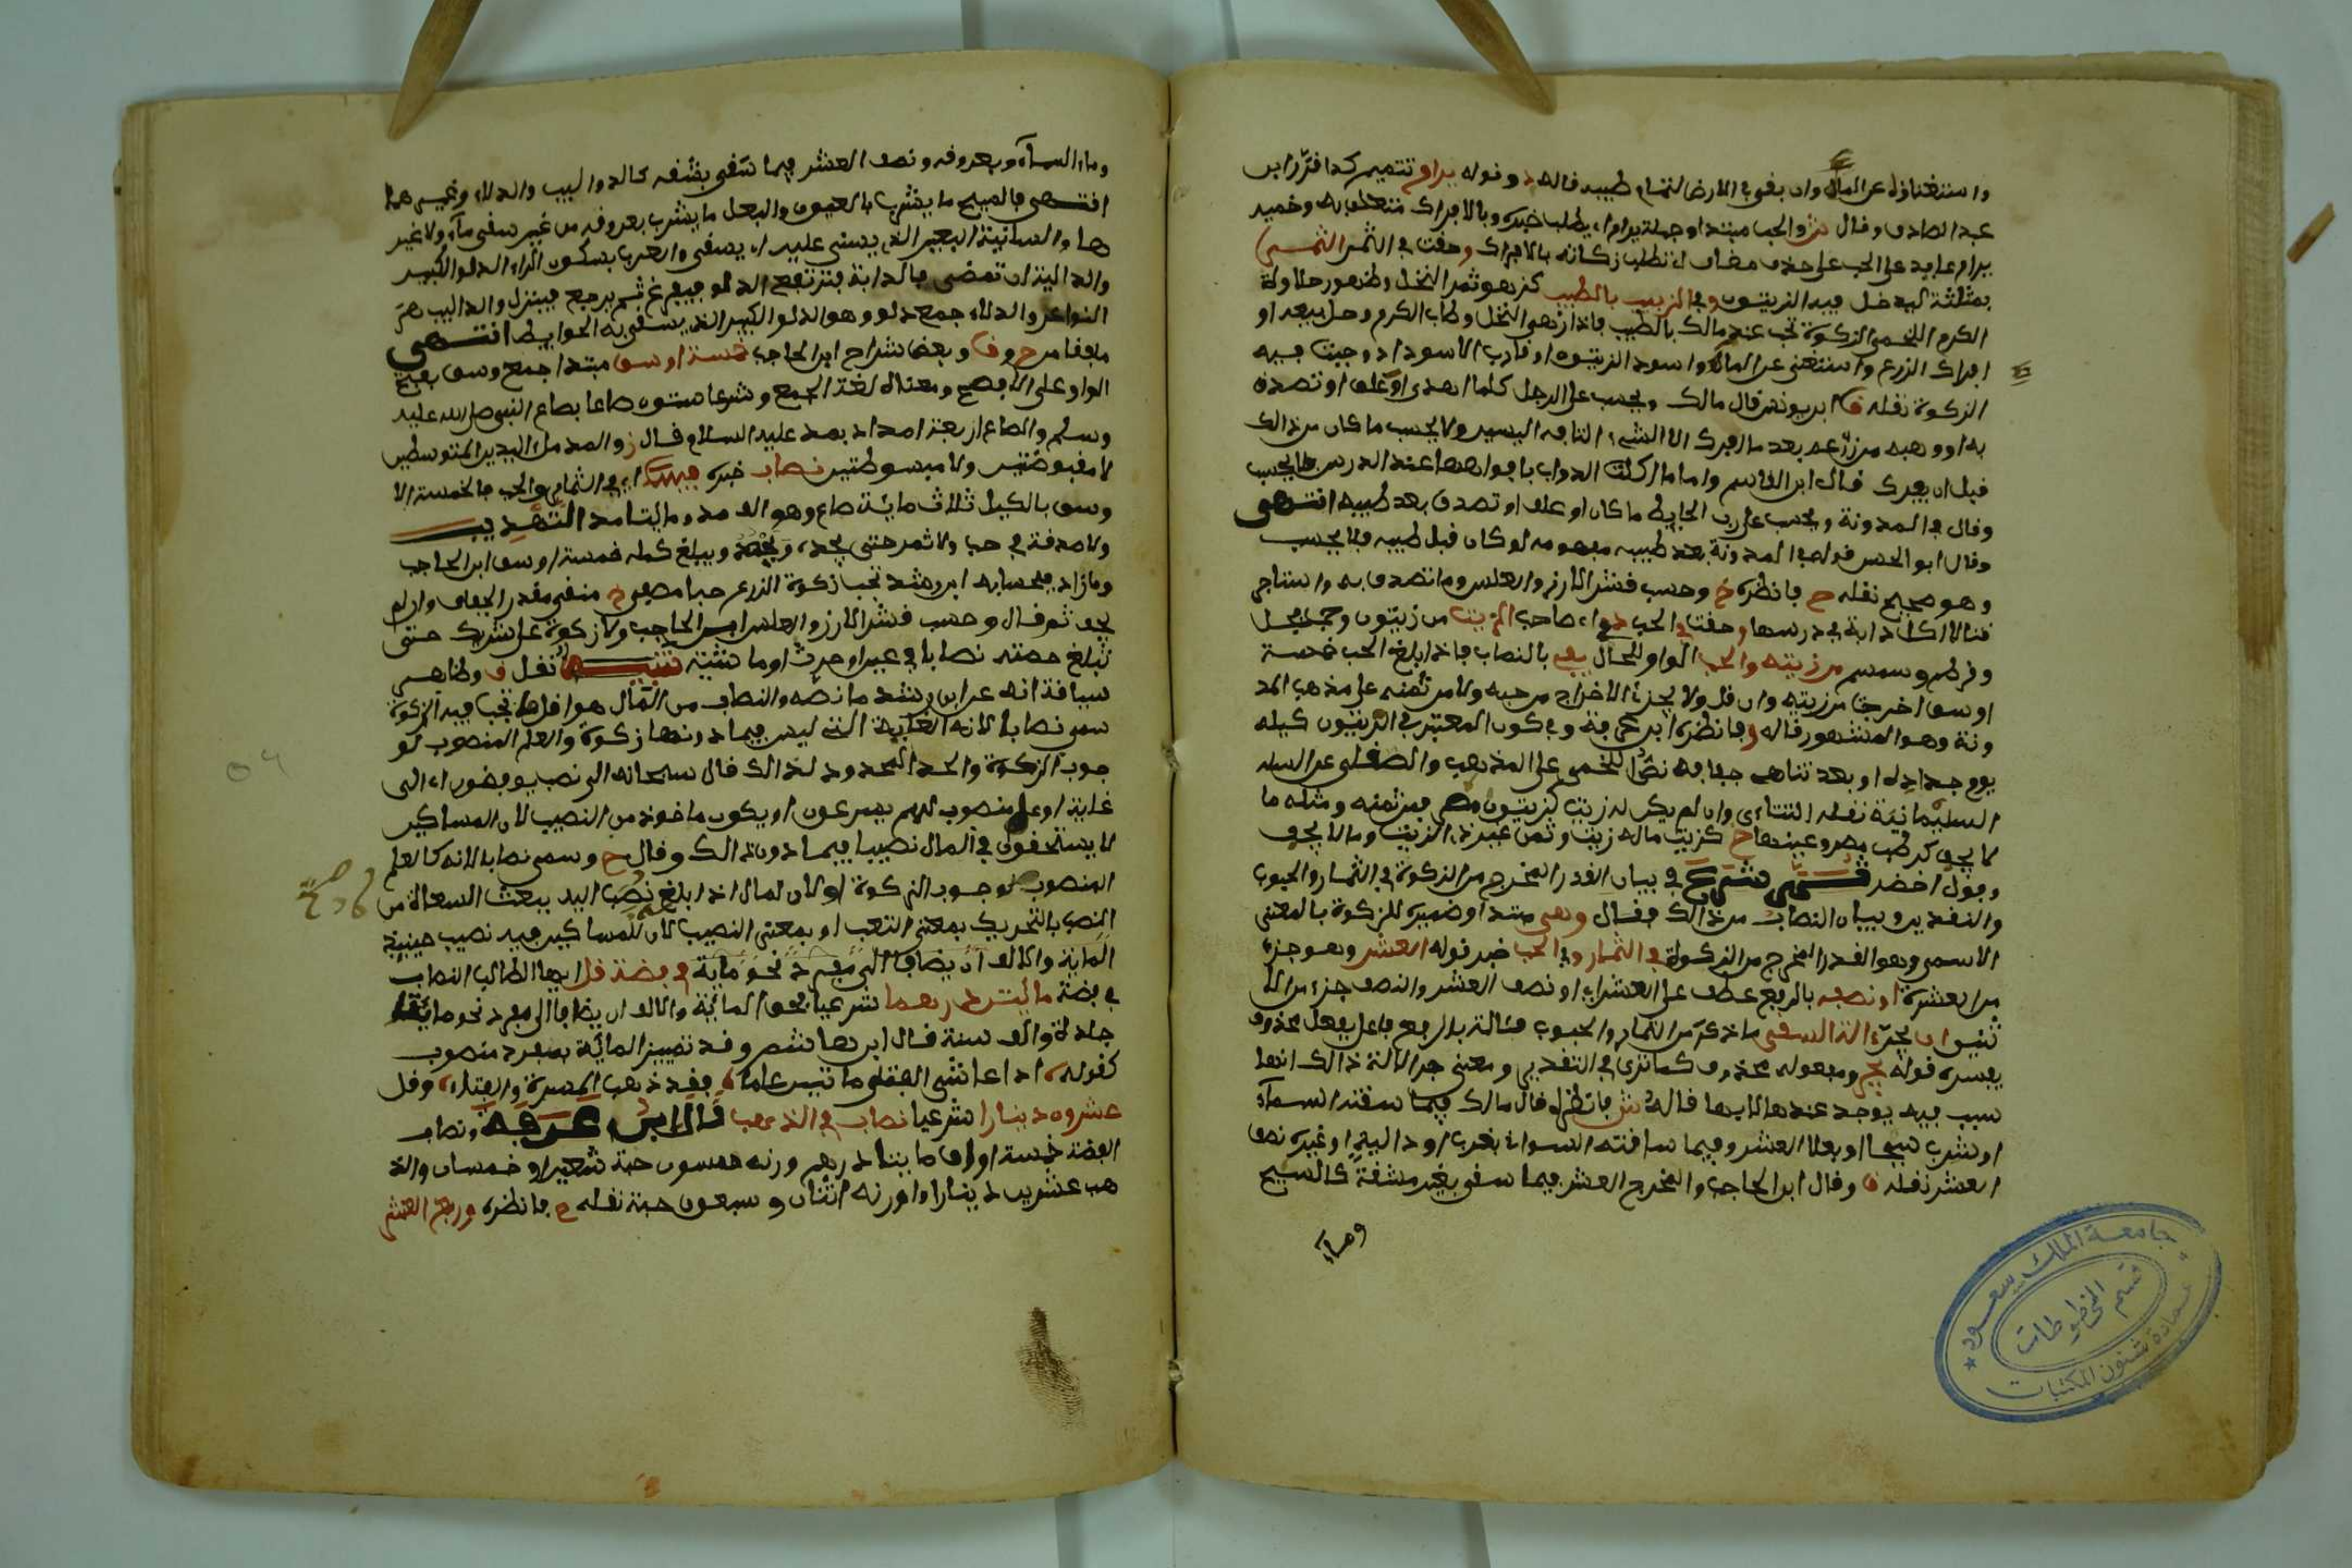 واستغناؤه عن الماء وان بقي في الارض لتمام طيبه قاله د وقوله يرام تتميم كذا قرر ابن
عبد الصادق وقال ش والحب مبتدا وجملة يرام اي يطلب خبره وبالافراك متعلق به وضمير
يرام عايد على الحب على حذف مضاف اي تطلب زكاته بالافراك وحقت في الثمر الثمر
بمثلثة ليدخل فيه الزيتون وفي الزبيب بالطيب كزهو ثمر النخل وظهور حلاوة
الكرم اللخمي الزكوة تجب عند مالك بالطيب فاذا ازهى النخل وطاب الكرم وحل بيعه او
افرك الزرع واستغنى عن الماء واسود الزيتون او قارب الاسوداد وجبت فيه
الزكوة نقله ق ابن يونس قال مالك ويحسب على الرجل كلما اهدى او علف او تصدق
به او وهبه من زرعه بعد ما افرك الا الشيء التافه اليسير ولا يحسب ما كان من ذالك
قبل ان يفرك قال ابن القاسم واما ما اكلت الدواب بافواهها عند الدرس فلا يحسب
وقال في المدونة ويحسب على رب الحايط ما كان او علف او تصدق بعد طيبه انتهى
وقال ابو الحسن قوله في المدونة بعد طيبه مفهومه لو كان قبل طيبه فلا يحسب
وهو صحيح نقله ح فانظره خ وحسب قشر الارز والعلس وما تصدق به واستاجر
قتا لا اكل دابة في درسها وحقت في الحب ذي اي صاحب الزيت من زيتون وحب فجل
وقرطم وسمسم من زيته والحب الواو للحال يفي بالنصاب فاذا بلغ الحب خمسة
اوسق اخرجت من زيته وان قل ولا يجزئ الاخراج من حبه ولا من ثمنه على مذهب المد
ونة وهو المشهور قاله وفانظره ابن عرفة وفي كون المعتبر في الزيتون كيله
يوم جداده او بعد تناهي جفافه نص اللخمي على المذهب والصقلي عن
السليمانية نقله التتاءي وان لم يكن له زيت كزيتون مصر فمن ثمنه ومثله ما
لا يجف كرطب مصر وعنبها خ كزيت ماله زيت وثمن غير ذي الزيت وما لا يجف
وفول اخضر ثم شرع في بيان القدر المخرج من الزكوة في الثمار والحبوب
والنقدين وبيان النصاب من ذالك فقال وهي مبتدا وضميره للزكوة بالمعنى
الاسمي وهو القدر المخرج من الزكوة في الثمار وفي الحب خبر قوله العشر وهو جزء
من العشرة او نصفه بالرفع عطف على العشر اي او نصف العشر والنصف جزء من الا
ثنين ان يجر الة السقي ما ذكر من الثمار والحبوب فئالة بالرفع فاعل بفعل محذوف
يفسره قوله يجر ومفعوله محذوف كما ترى في التقدير ومعنى جر الالة ذالك انها
سبب فيه يوجد عندها لا بها قاله ش فانظره قال مالك فيما سقته السماء
او شرب سيحا او بعلا العشر وفيما سقته السواني بغرب او دالية او غيره نصف
العشر نقله ق وقال ابن الحاجب والمخرج العشر فيما سقي بغير مشقة كالسيح
وماء
وماء السماء وبعروقه ونصف العشر فيما سقي بمشقة كالدواليب والدلاء وغيرهما
انتهى فالسيح ما يشرب بالعيون والبعل ما يشرب بعروقه من غير سقي ماء ولا غير
ها والسانية البعير الذي يسنى عليه اي يسقى والغرب بسكون الراء الدلو الكبير
والدالية ان تمضي بالدابة فترتفع الدلو فيفرغ ثم يرجع فينزل والدواليب هي
النواعر والدلاء جمع دلو وهو الدلو الكبير الذي يسقى به الحوايط انتهى
ملفقا من ح وق وبعض شراح ابن الحاجب خمسة اوسق مبتدا جمع وسق بفتح
الواو على الافصح ومعناه لغة الجمع وشرعا ستون صاعا بصاع النبي صلى الله عليه
وسلم والصاع اربعة امداد بمده عليه السلام قال ز والمد ملء اليدين المتوسطين
لا مقبوضتين ولا مبسوطتين نصاب خبره فيهما اي في الثمار والحب فالخمسة الا
وسق بالكيل ثلاث ماية صاع وهو الف مد ومايتا مد التهذيب
ولا صدقة في حب ولا ثمر حتى يجد ويحصد ويبلغ كله خمسة اوسق ابن الحاجب
وما زاد فبحسابه ابن رشد تجب زكوة الزرع حبا مصفى خ منقى مقدر الجفاف وان لم
يجف ثم قال وحسب قشر الارز والعلس ابن الحاجب ولا زكوة على شريك حتى
تبلغ حصته نصابا في عين او حرث او ماشية تنبيه نقل ق وظاهر
سياقه انه عن ابن رشد ما نصه والنصاب من المال هو اقل ما تجب فيه الزكوة
سمي نصابا لانه الغاية التي ليس فيما دونها زكوة والعلم المنصوب لو
جوب الزكوة والحد المحدود لذالك قال سبحانه الى نصب يوفضون اي الى
غاية او علم منصوب لهم يسرعون او يكون ماخوذ من النصيب لان المساكين
لا يستحقون في المال نصيبا فيما دون ذالك وقال ح وسمي نصابا لانه كالعلم
المنصوب لوجوب الزكوة او لان المال اذا بلغ نصب اليه ببعث السعاة من
النصب بالتحريك بمعنى التعب او بمعنى النصيب لان للمساكين فيه نصيب حينيذ
الماية والالف ان يضاف الى مفرد نحو ماية في فضة قل ايها الطالب النصاب
في فضة مائتا درهما شرعيا بحق الماية والالف ان يضافا الى مفرد نحو ماية
جلدة والف سنة قال ابن هاشم وقد تمييز الماية بمفرد منصوب
كقوله اذا عاش الفتى ماتين عاما فقد ذهب المسرة والفتاء وقل
عشرون دينارا شرعيا نصاب في الذهب قال ابن عرفة ونصاب
الفضة خمسة اواق مايتا درهم وزنه خمسون حبة شعير او خمسان والذ
هب عشرين دينارا وزنه اثنان وسبعون حبة نقله ح فانظره وربع العشر
جامعة الملك سعود
قسم المخطوطات
عمادة شئون المكتبات